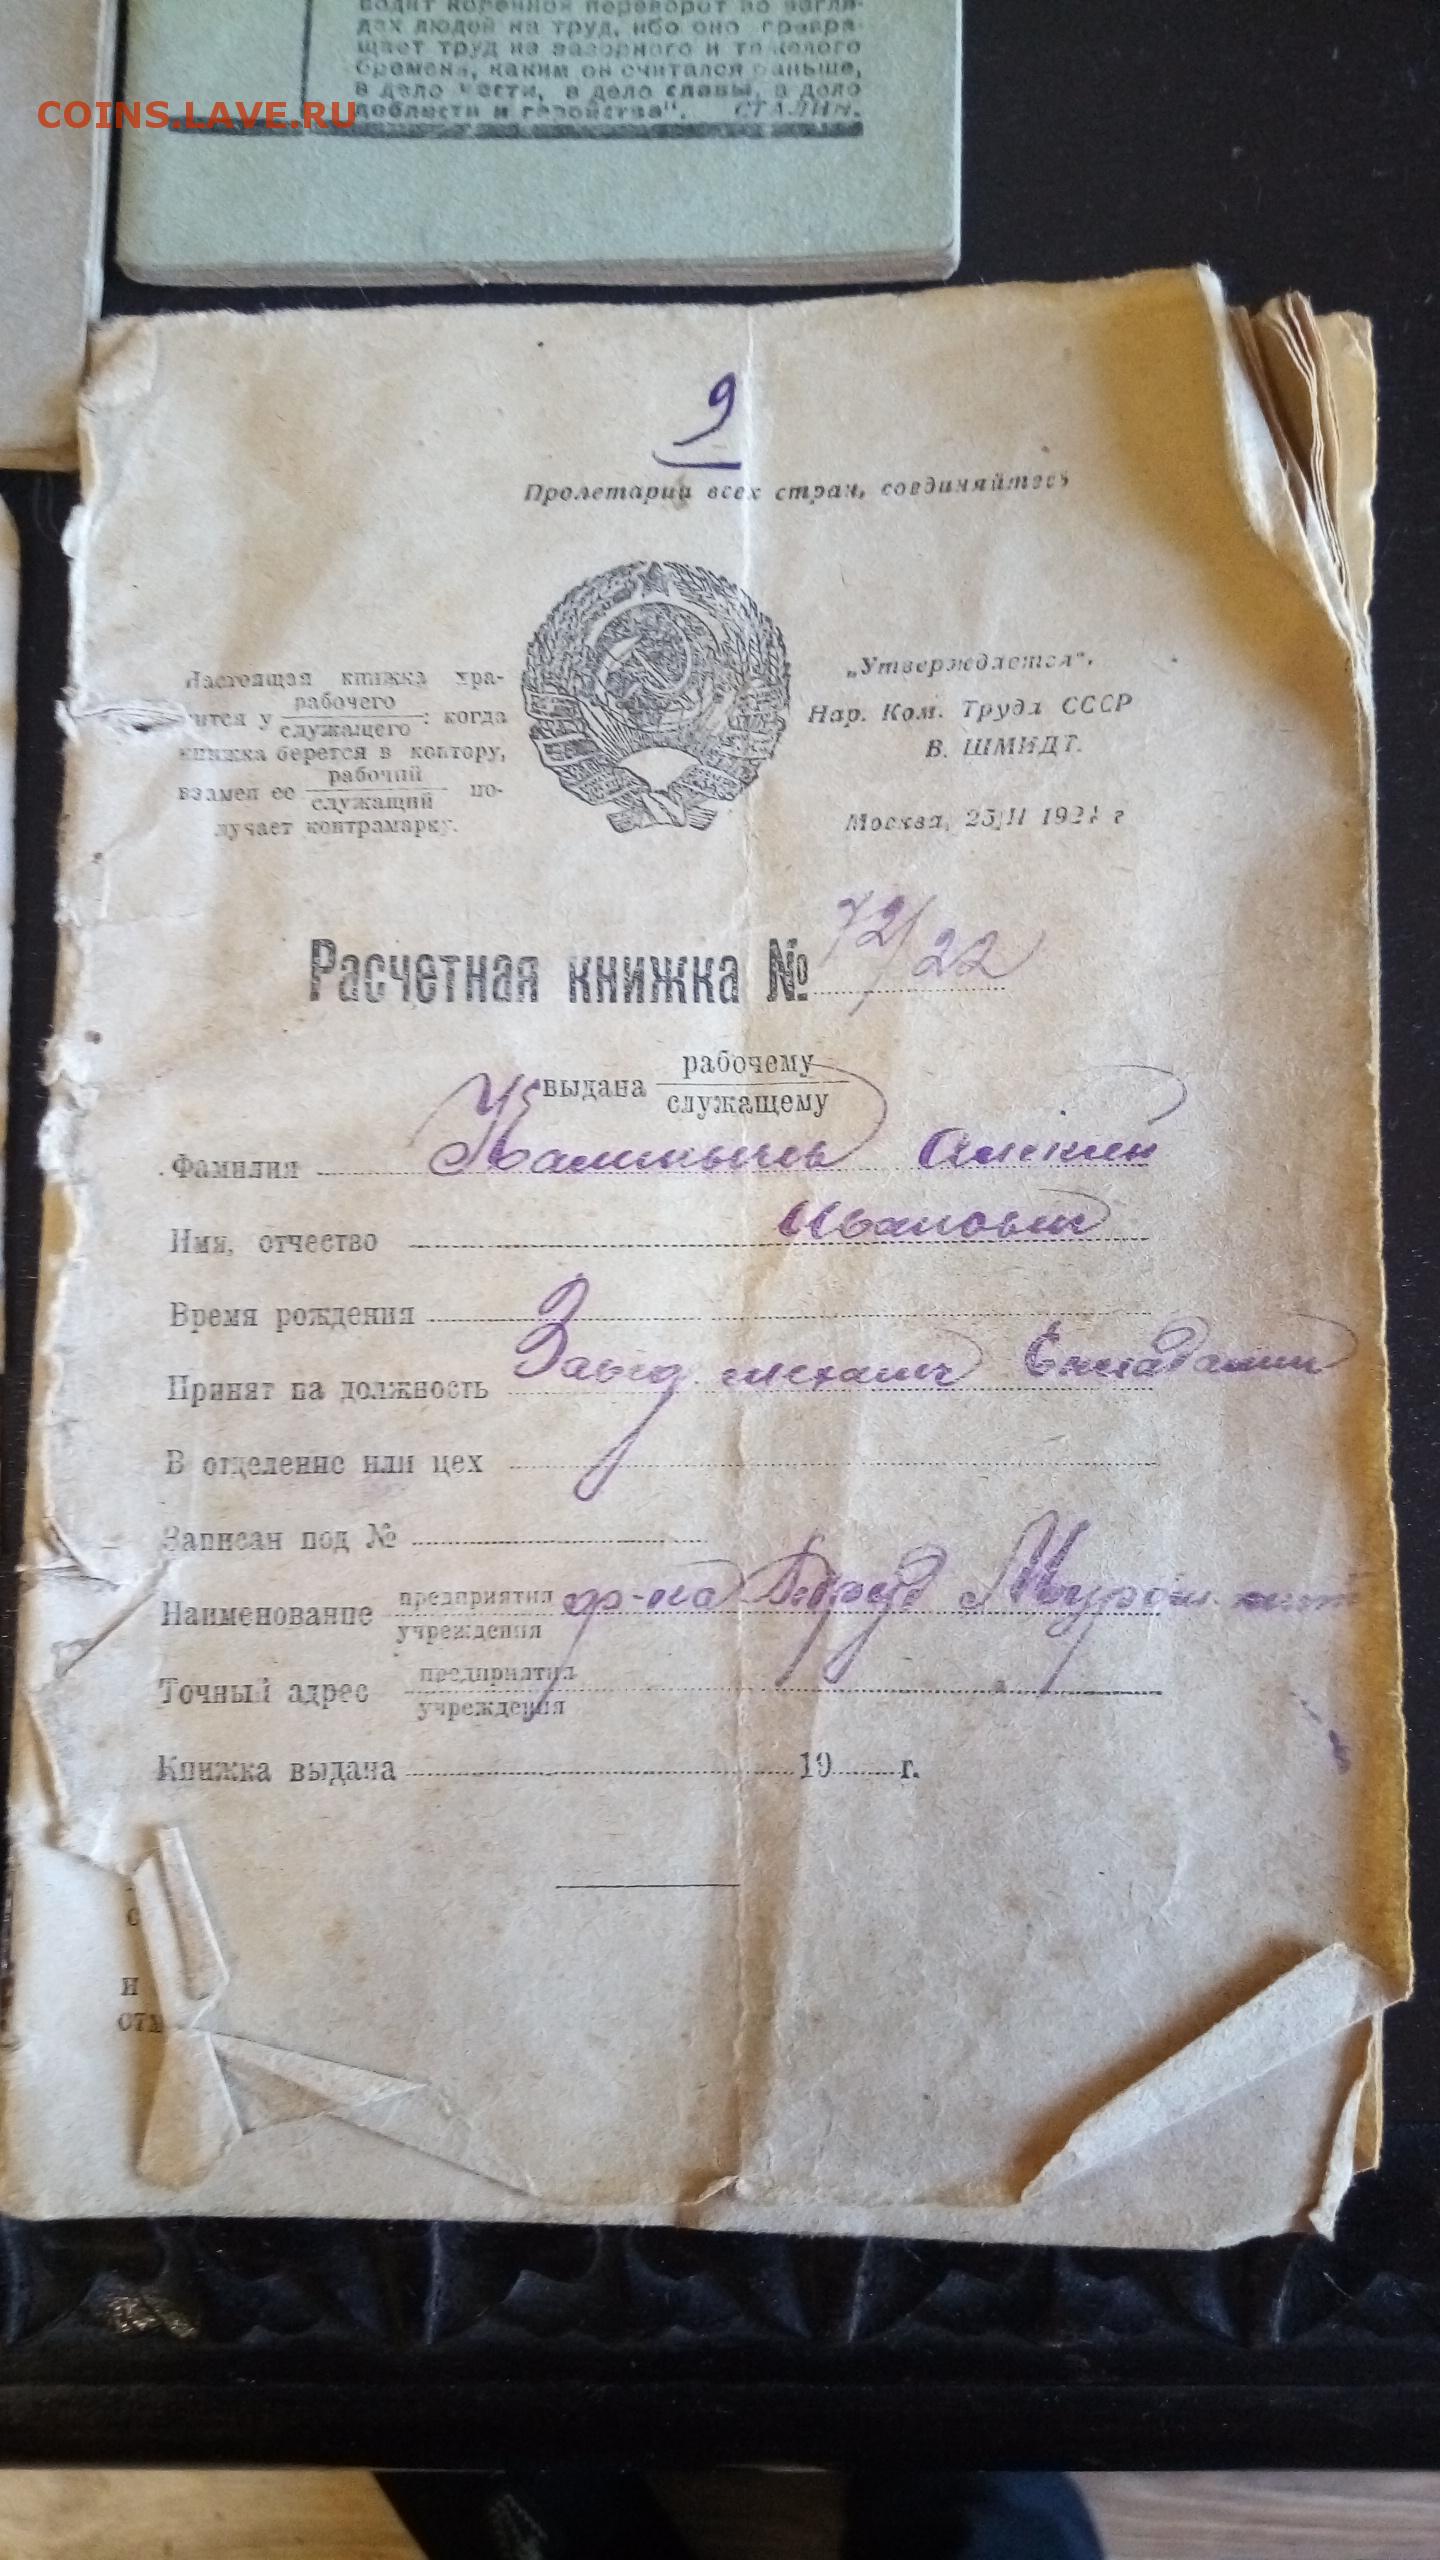 водит коренной переворот во взгля-
дах людей на труд, ибо оно превра-
щает труд из зазорного и тяжелого
бремени, каким он считался раньше,
в дело чести, в дело славы, в дело
доблести и геройства". СТАЛИН.
COINS.LAVE.RU
9
Пролетарии всех стран, соединяйтесь
Настоящая книжка хра-
нится у рабочего
служащего: когда
книжка берется в контору,
взамен ее рабочий
служащий по-
лучает контрамарку.
„Утверждается".
Нар. Ком. Труда СССР
В. ШМИДТ.
Москва, 25/II 192 г
Расчетная книжка № 72/22
выдана рабочему
служащему
Фамилия
Имя, отчество
Время рождения
Принят на должность Завед механич
В отделение или цех
Записан под №
Наименование предприятия
учреждения ф-ка Труд
Точный адрес предприятия
учреждения
Книжка выдана 19 г.
с
и